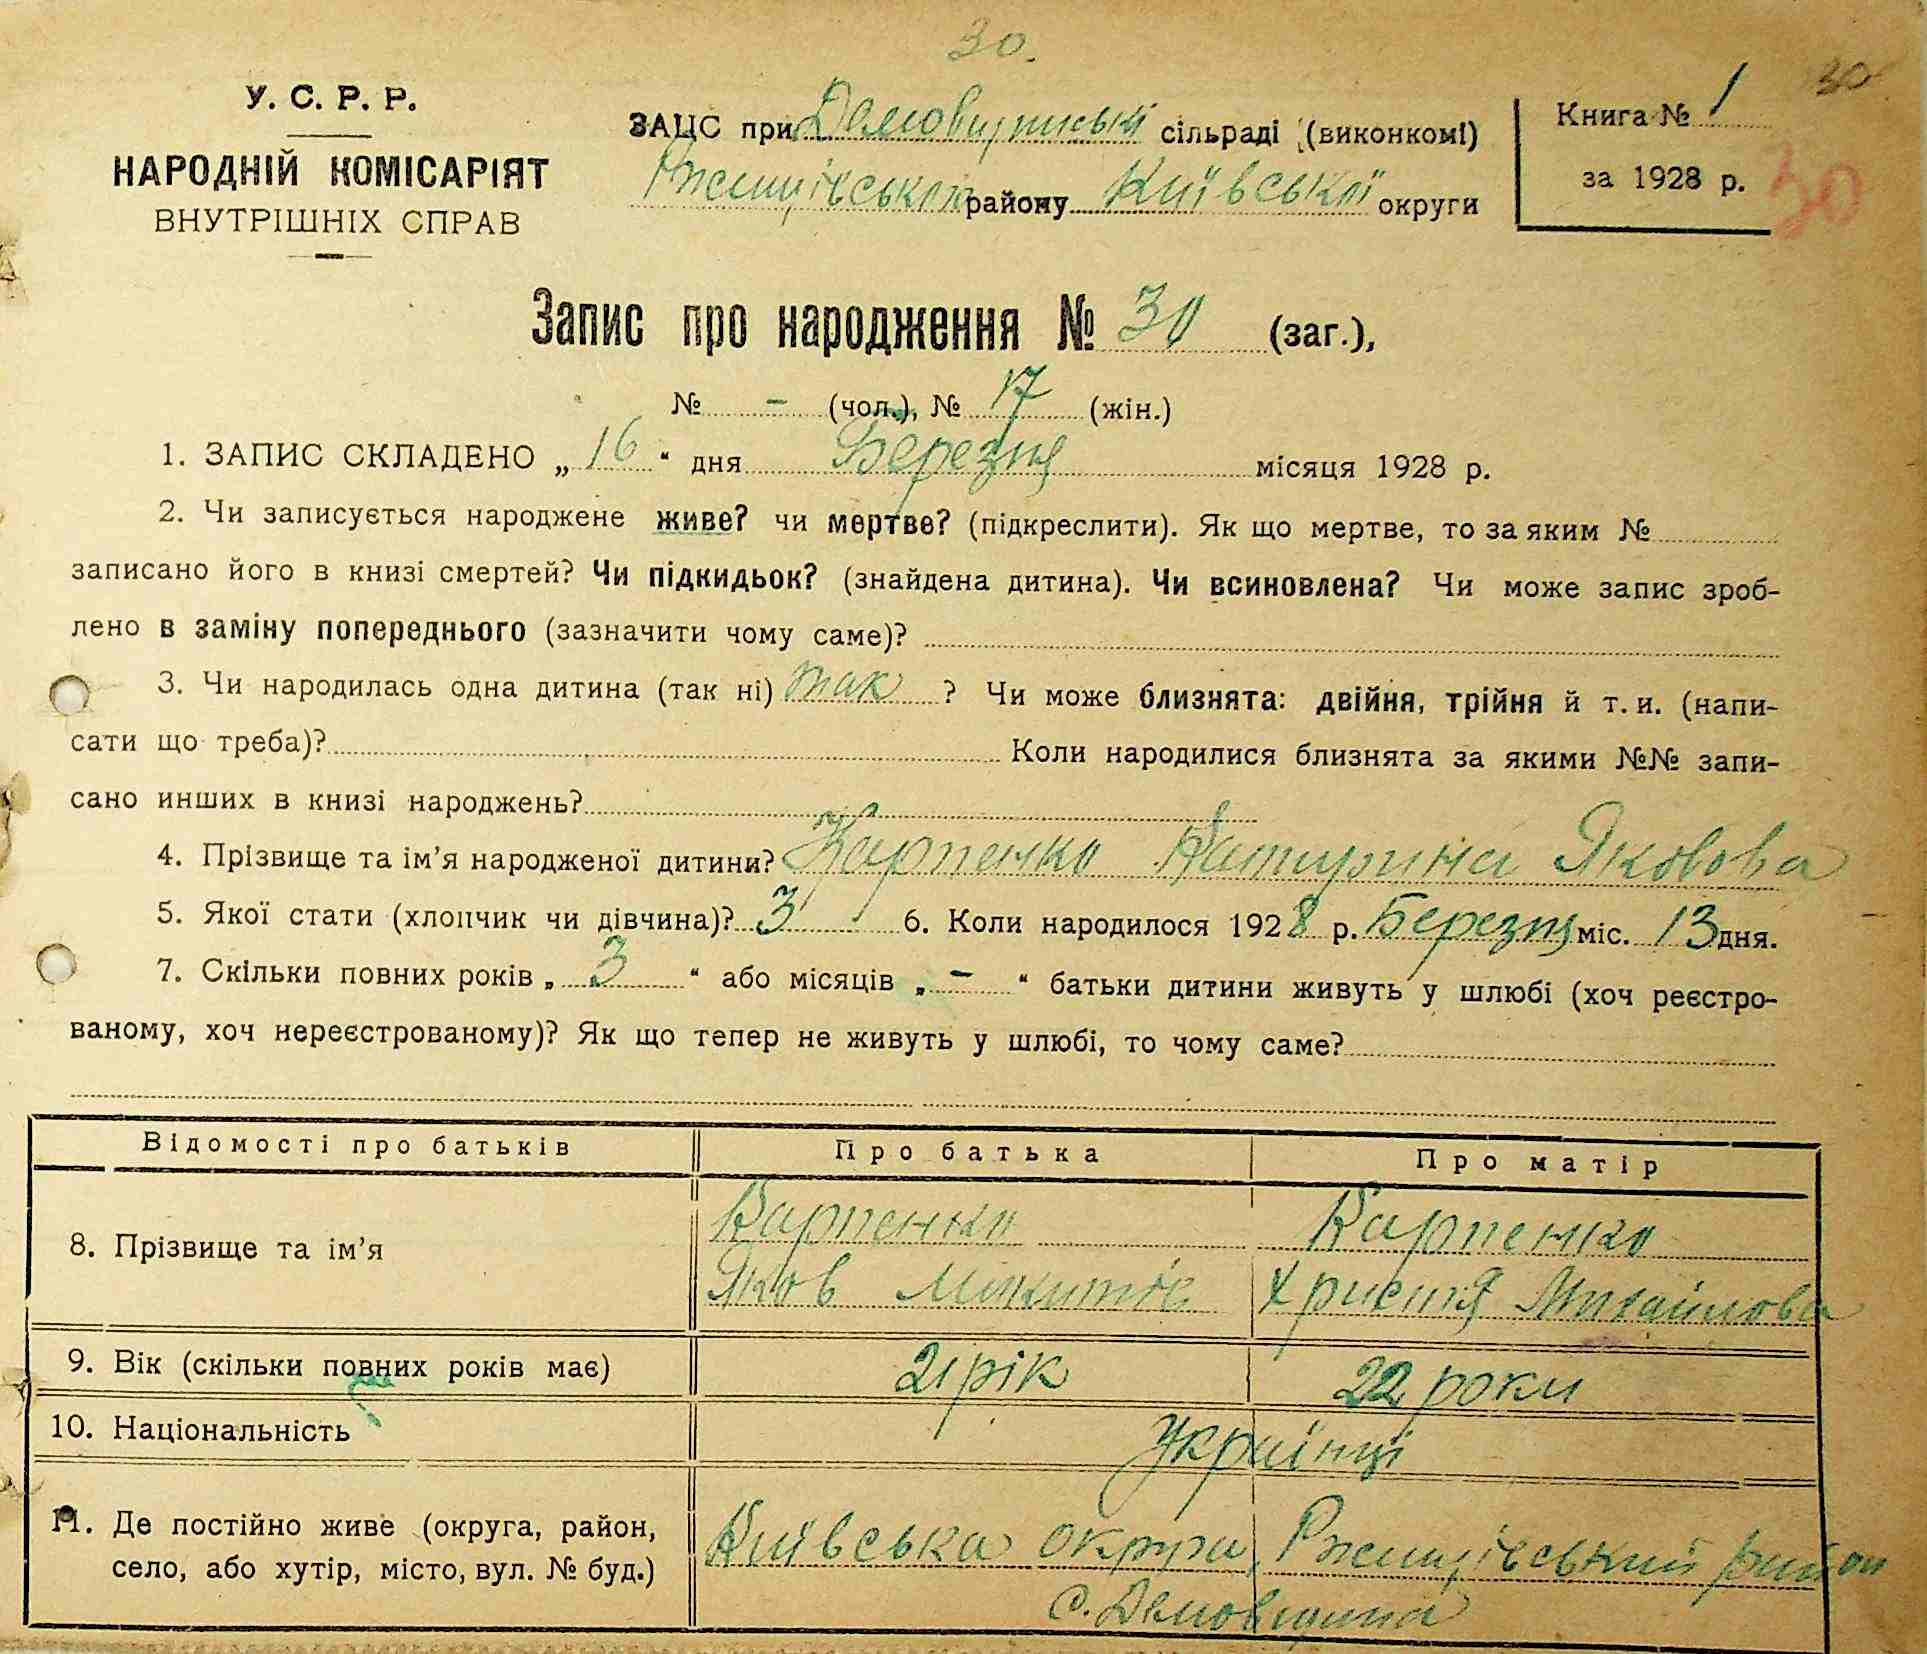 30.
У. С. Р. Р.
НАРОДНІЙ КОМІСАРІЯТ
ВНУТРІШНІХ СПРАВ
ЗАЦС при Демовщинській сільраді (виконкомі)
Ржищівського району Київської округи
Книга № 1
за 1928 р.
30
30
Запис про народження № 30 (заг.),
№ - (чол.), № 17 (жін.)
1. ЗАПИС СКЛАДЕНО „16“ дня Березня місяця 1928 р.
2. Чи записується народжене живе? чи мертве? (підкреслити). Як що мертве, то за яким №
записано його в книзі смертей? Чи підкидьок? (знайдена дитина). Чи всиновлена? Чи може запис зроб-
лено в заміну попереднього (зазначити чому саме)?
3. Чи народилась одна дитина (так ні) так ? Чи може близнята: двійня, трійня й т. и. (напи-
сати що треба)? Коли народилися близнята за якими №№ запи-
сано инших в книзі народжень?
4. Прізвище та ім'я народженої дитини? Карпенко Катирина Яковова
5. Якої стати (хлопчик чи дівчина)? З 6. Коли народилося 1928 р. Березня міс. 13 дня.
7. Скільки повних років „ 3 “ або місяців „ - “ батьки дитини живуть у шлюбі (хоч реєстро-
ваному, хоч нереєстрованому)? Як що тепер не живуть у шлюбі, то чому саме?
Відомості про батьків Про батька Про матір
8. Прізвище та ім'я
Карпенко Карпенко
Яков Микитів Христя Михайлова
9. Вік (скільки повних років має) 21 рік 22 роки
10. Національність Українці
11. Де постійно живе (округа, район,
село, або хутір, місто, вул. № буд.)
Київська округа, Ржищівський район
с. Демовщина